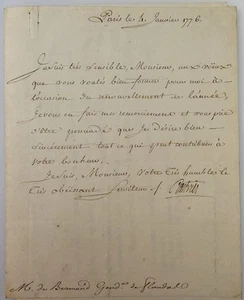 Paris le 4. Janvier 1776.
Je suis très sensible, Monsieur, aux vœux
que vous voulés bien former pour moi à
l'occasion du renouvellement de l'année,
je vous en fais mes remerciemens et vous prie
d'être persuadé que je désire bien
sincèrement tout ce qui peut contribuer à
votre bonheur.
Je suis, Monsieur, votre très humble et
très obéissant serviteur
M. de